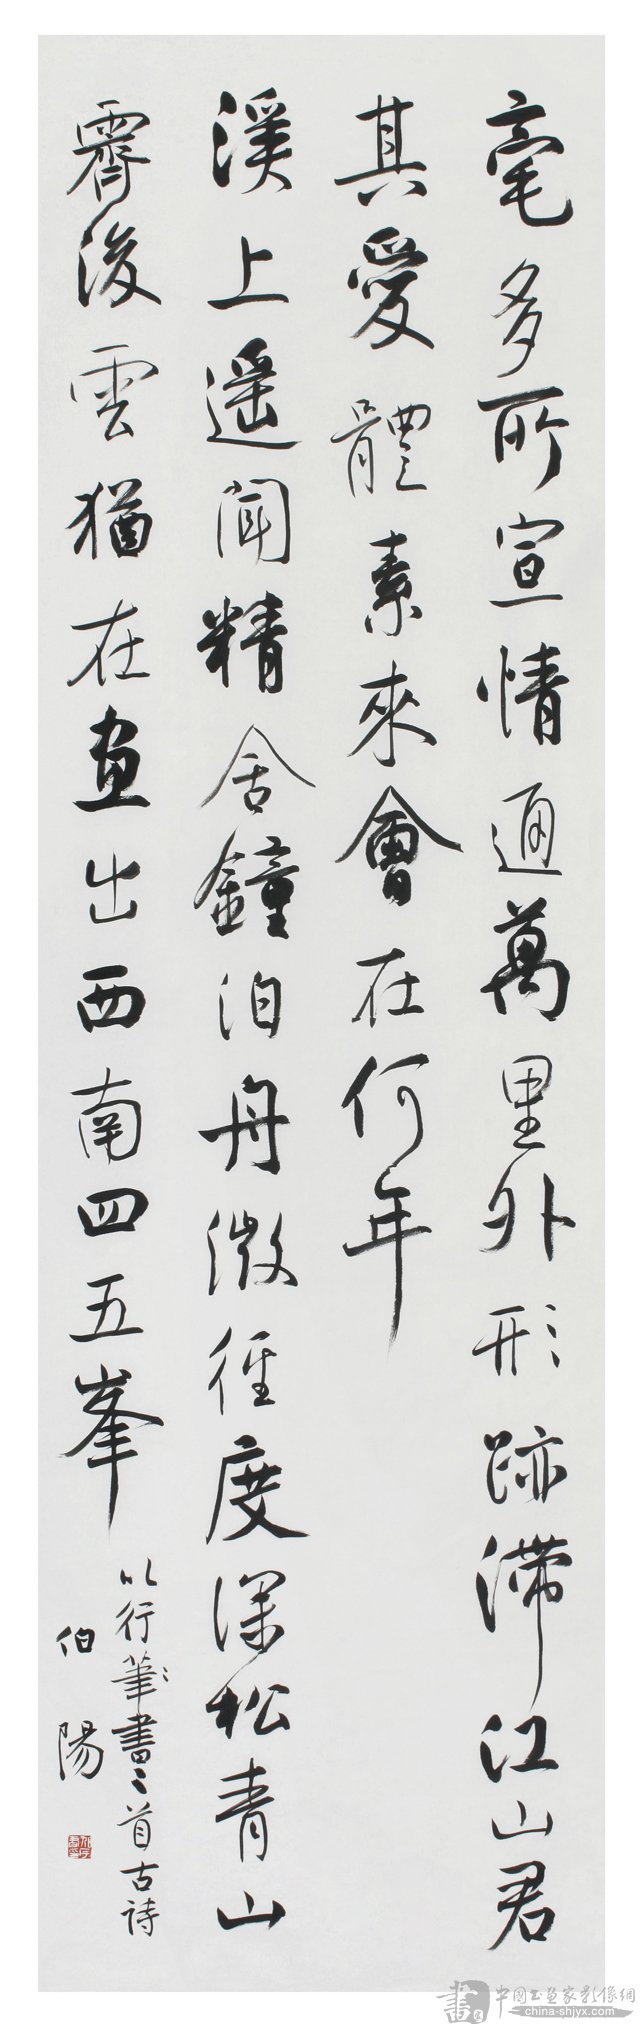 毫多所宣情通萬里外形跡滯江山君
其愛體素來會在何年
溪上遥聞精舍鐘泊舟微徑度深松青山
霽後雲猶在畫出西南四五峯
以行筆書二首古詩
伯陽
書 中國书畫家影像網
china-shjyx.com